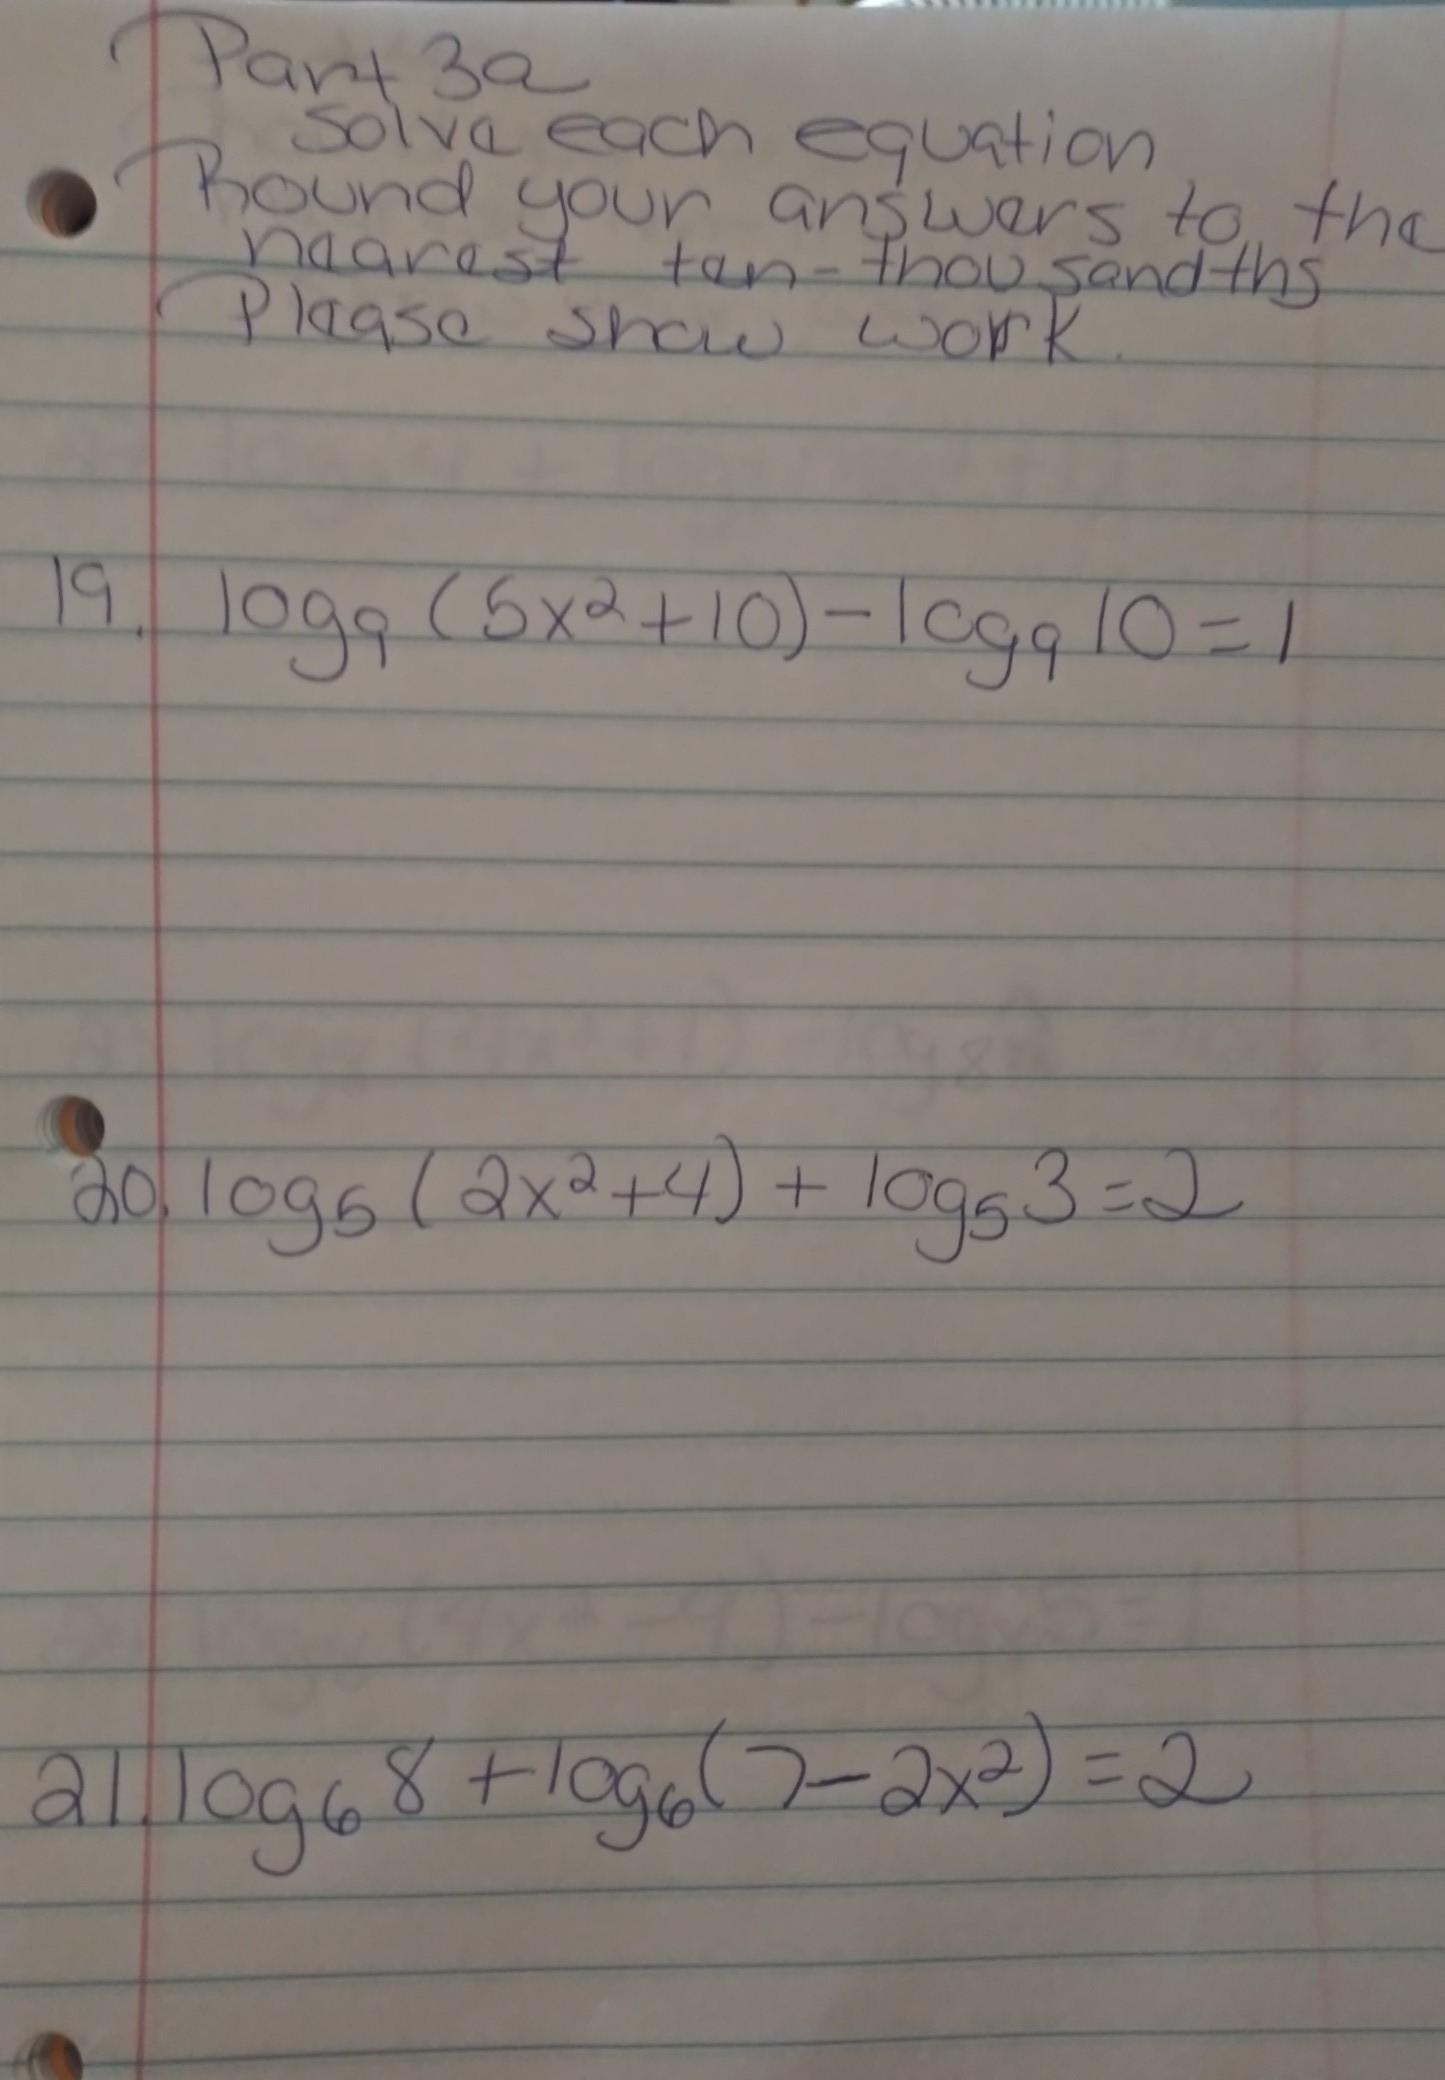 Part 3a
Solve each equation
Round your answers to the
nearest ten-thousandths
Please show work.
19. log₉ (5x²+10) - log₉ 10 = 1
20. log₅ (2x²+4) + log₅ 3 = 2
21. log₆ 8 + log₆ (7-2x²) = 2